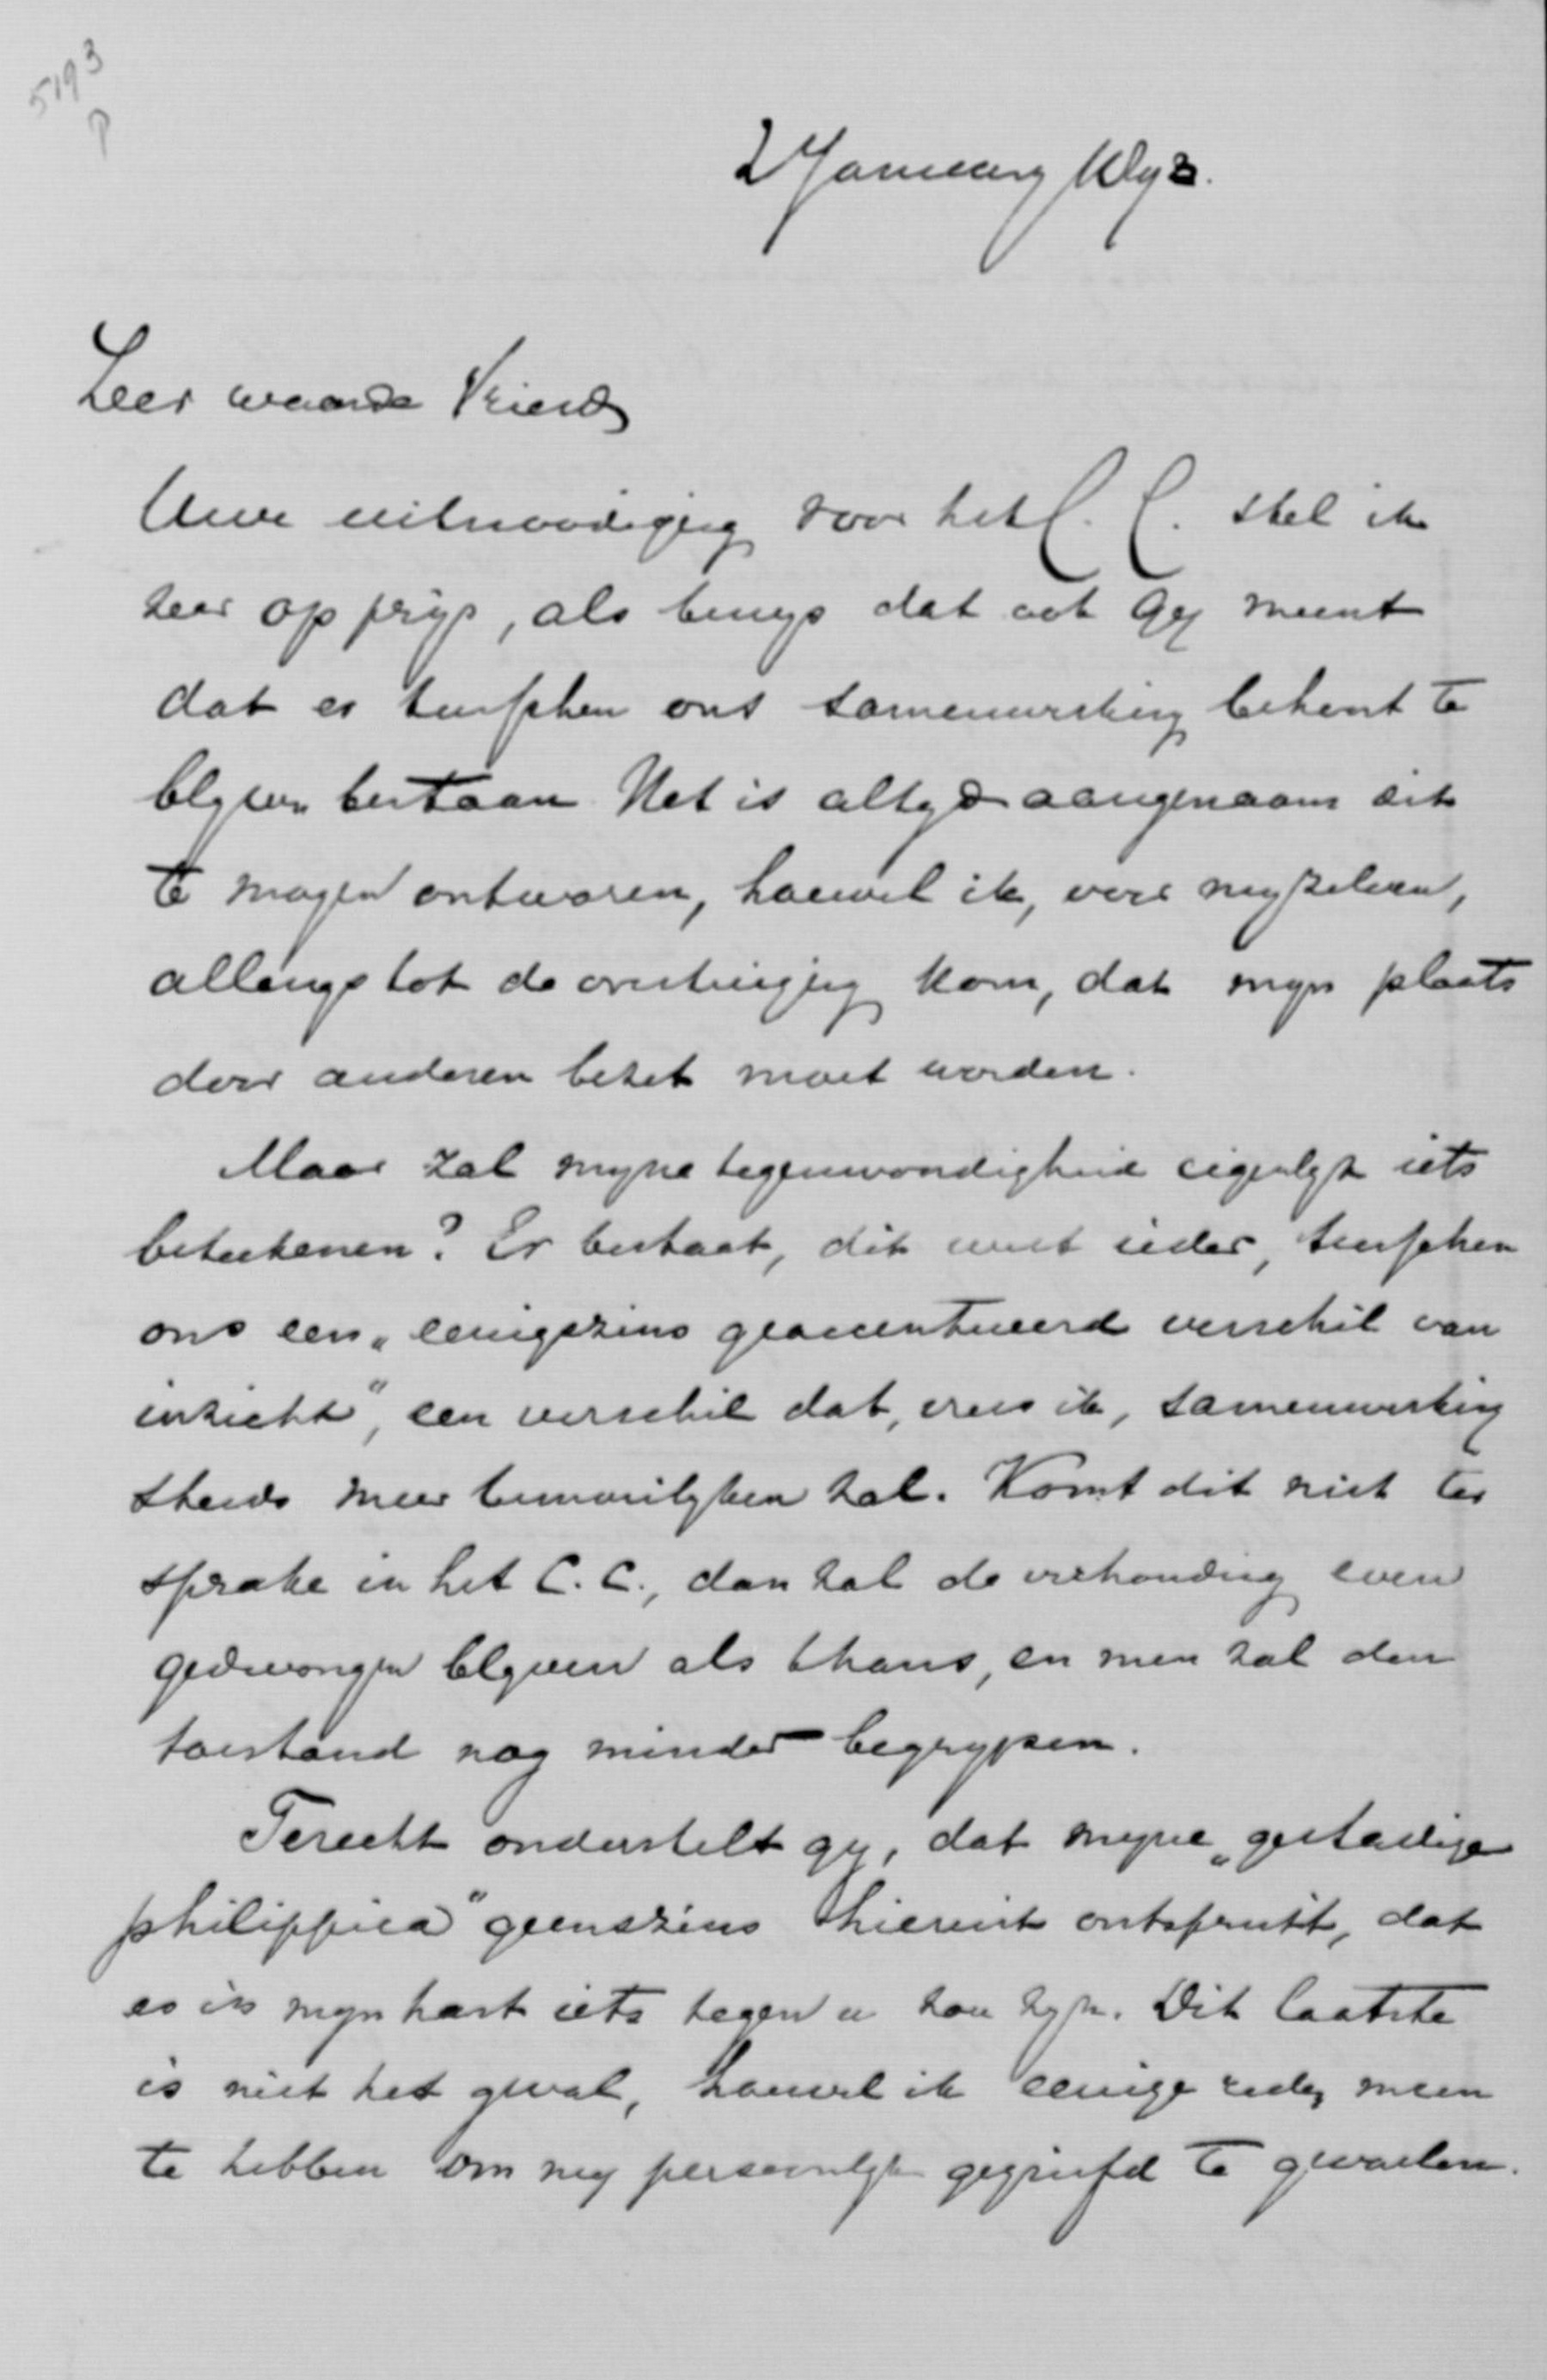 5193
P
2 January 1893.
Zeer waarde Vriend
Uwe uitnoodiging voor het C. C. stel ik
zeer op prijs, als bewijs dat ook Gij meent
dat er tusschen ons samenwerking behoort te
blijven bestaan. Het is altijd aangenaam dit
te mogen ontwaren, hoewel ik, voor mijzelven,
allengs tot de overtuiging kom, dat mijn plaats
door anderen bezet moet worden.
Maar zal mijne tegenwoordigheid eigenlijk iets
beteekenen? Er bestaat, dit weet ieder, tusschen
ons een „eenigszins geaccentueerd verschil van
inzicht", een verschil dat, vrees ik, samenwerking
steeds meer bemoeilijken zal. Komt dit niet ter
sprake in het C. C., dan zal de verhouding even
gedwongen blijven als thans, en men zal den
toestand nog minder begrijpen.
Terecht onderstelt gij, dat mijne „gestadige
philippica" geenszins hieruit ontspruit, dat
er in mijn hart iets tegen u zou zijn. Dit laatste
is niet het geval, hoewel ik eenige reden meen
te hebben om mij persoonlijk gegriefd te gevoelen.